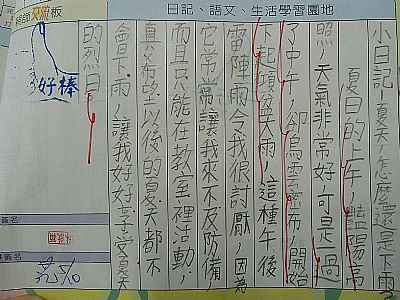 日記、語文、生活學習園地
小日記 夏天,怎麼還是下雨
夏日的上午,豔陽高
照,天氣非常好,可是一過
了中午,卻烏雲密布,開始
下起傾盆大雨,這種午後
雷陣雨令我很討厭,因為
它常常讓我來不及防備,
而且只能在教室裡活動,
真希望以後的夏天都不
會下雨,讓我好好享受夏天
的烈日。
好棒
簽名
簽名